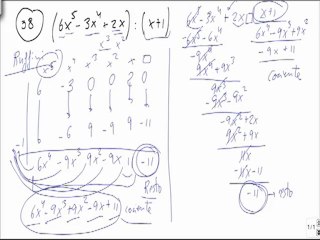 98) (6x⁵-3x⁴+2x) : (x+1)
x³ x²
Ruffini x⁵ x⁴ x³ x² x □
6 -3 0 0 2 0
-1 -6 9 9 9 -11
6x⁴ -9x³ 9x² -9x 11 -11
Resto
6x⁴-9x³+9x²-9x+11 cociente
6x⁵-3x⁴ +2x □ x+1
-6x⁵-6x⁴ 6x⁴-9x³+9x²
-9x⁴ -9x+11
9x⁴+9x³ cociente
9x³
-9x³-9x²
-9x²+2x
9x²+9x
11x
-11x-11
-11 → resto
1/1